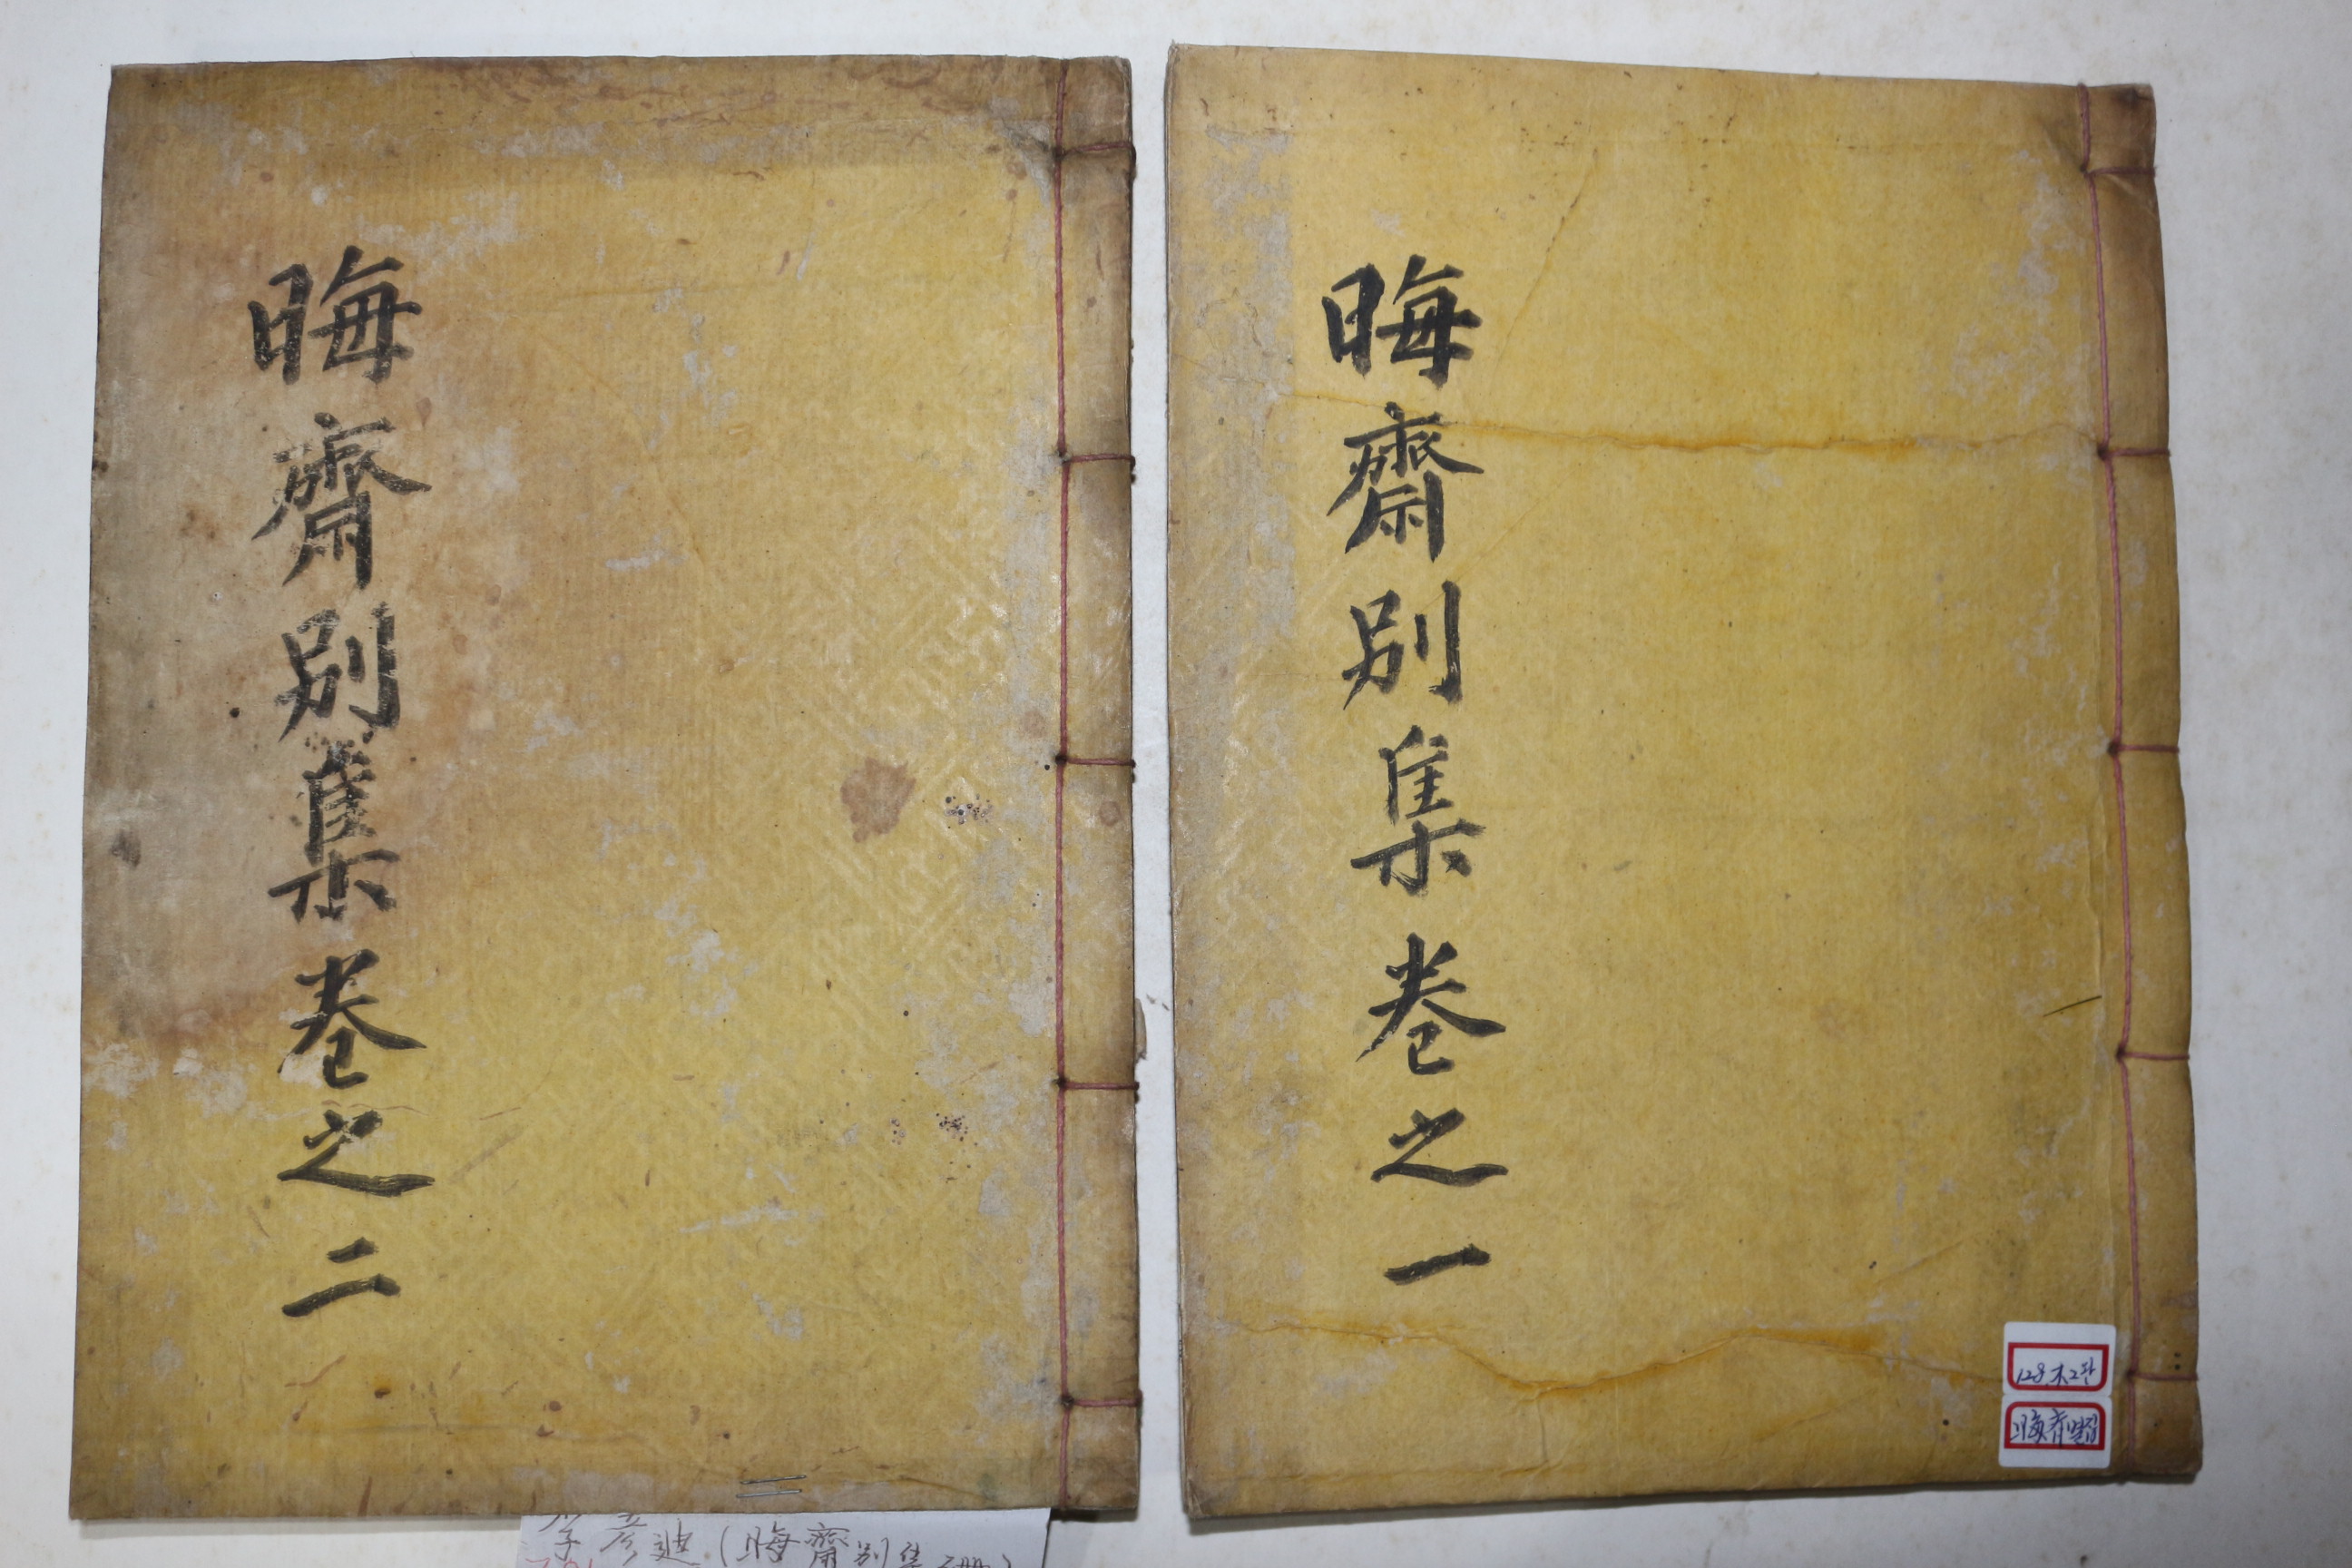 晦齋別集卷之一
晦齋別集卷之二
128.木2판
晦齋
李彦迪(晦齋別集